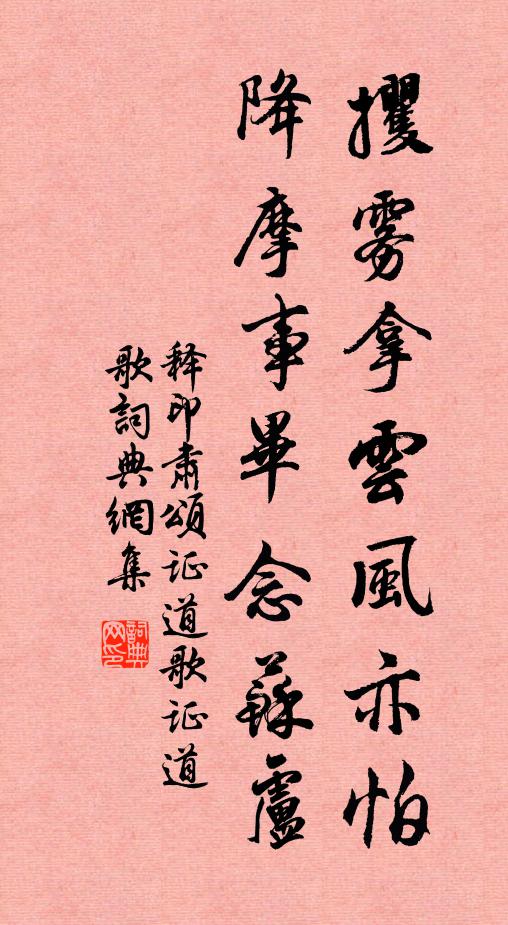 攫雾拿雲風亦怕
降摩事畢念蘇盧
释印肃頌证道歌证道
歌詞典網集
詞典
网印